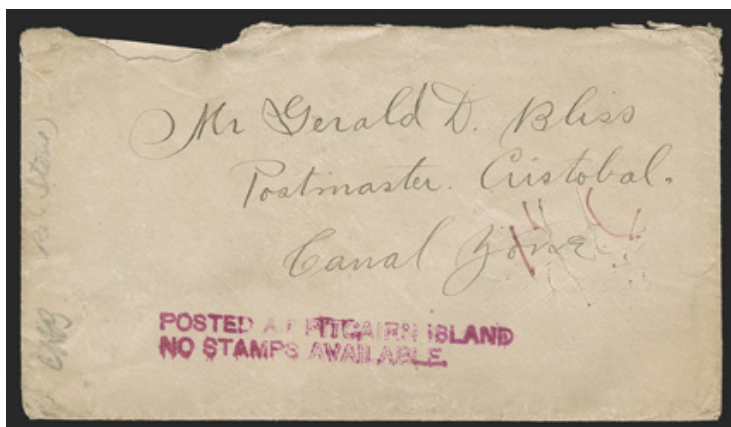 Mr Gerald D. Bliss
Postmaster. Cristobal.
Canal Zone
POSTED AT PITCAIRN ISLAND
NO STAMPS AVAILABLE.